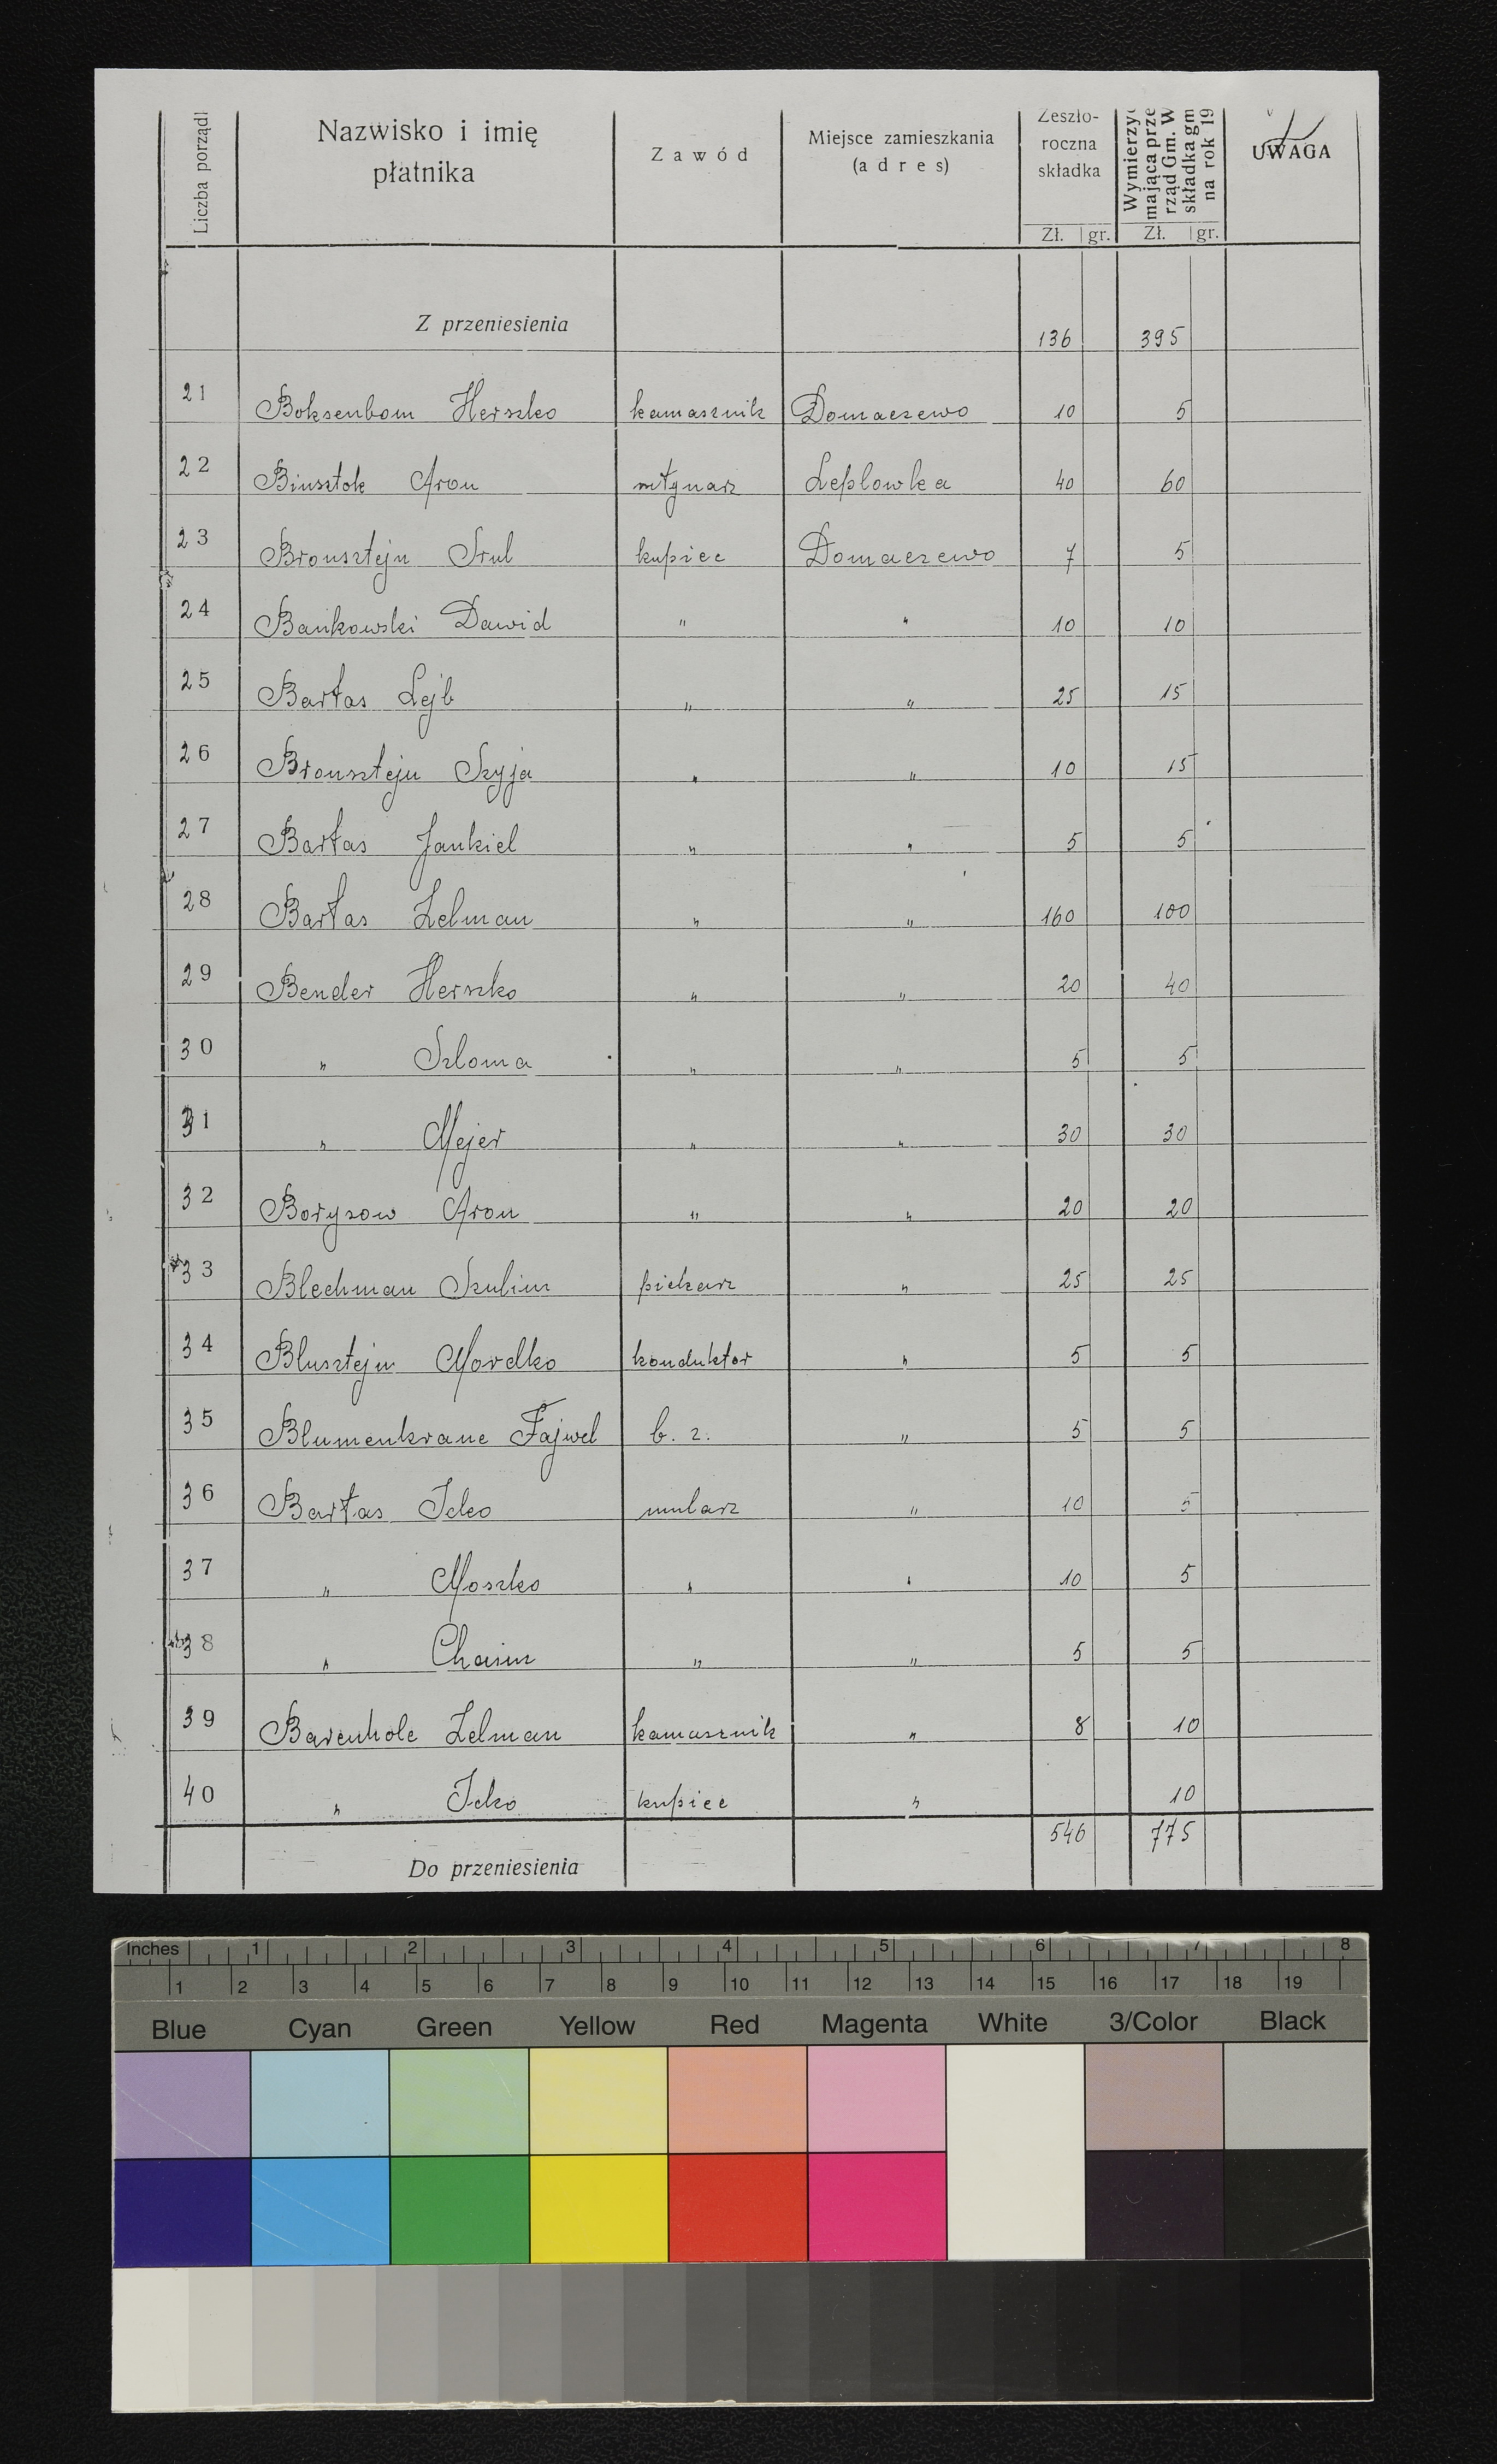 Liczba porządk
Nazwisko i imię
płatnika
Zawód
Miejsce zamieszkania
(adres)
Zeszło-
roczna
składka
Zł. gr.
Wymierzyć
mająca prze
rząd Gm. W
składka gm
na rok 19
Zł. gr.
UWAGA
Z przeniesienia 136 395
21 Boksenbom Herszko kamasznik Domaczewo 10 5
22 Biusztok Aron młynarz Leplowka 40 60
23 Bronsztejn Srul kupiec Domaczewo 7 5
24 Bankowski Dawid " " 10 10
25 Bartas Lejb " " 25 15
26 Bronsztejn Szyja " " 10 15
27 Bartas Jankiel " " 5 5
28 Bartas Zelman " " 160 100
29 Bender Herszko " " 20 40
30 " Szloma " " 5 5
31 " Mejer " " 30 30
32 Borysow Aron " " 20 20
33 Blechman Szulim piekarz " 25 25
34 Blusztejn Mordko konduktor " 5 5
35 Blumenkranc Fajwel b. z. " 5 5
36 Bartas Icko mularz " 10 5
37 " Moszko " " 10 5
38 " Chaim " " 5 5
39 Barenholc Zelman kamasznik " 8 10
40 " Icko kupiec " 10
546 775
Do przeniesienia
Inches 1 2 3 4 5 6 7 8
1 2 3 4 5 6 7 8 9 10 11 12 13 14 15 16 17 18 19
Blue Cyan Green Yellow Red Magenta White 3/Color Black